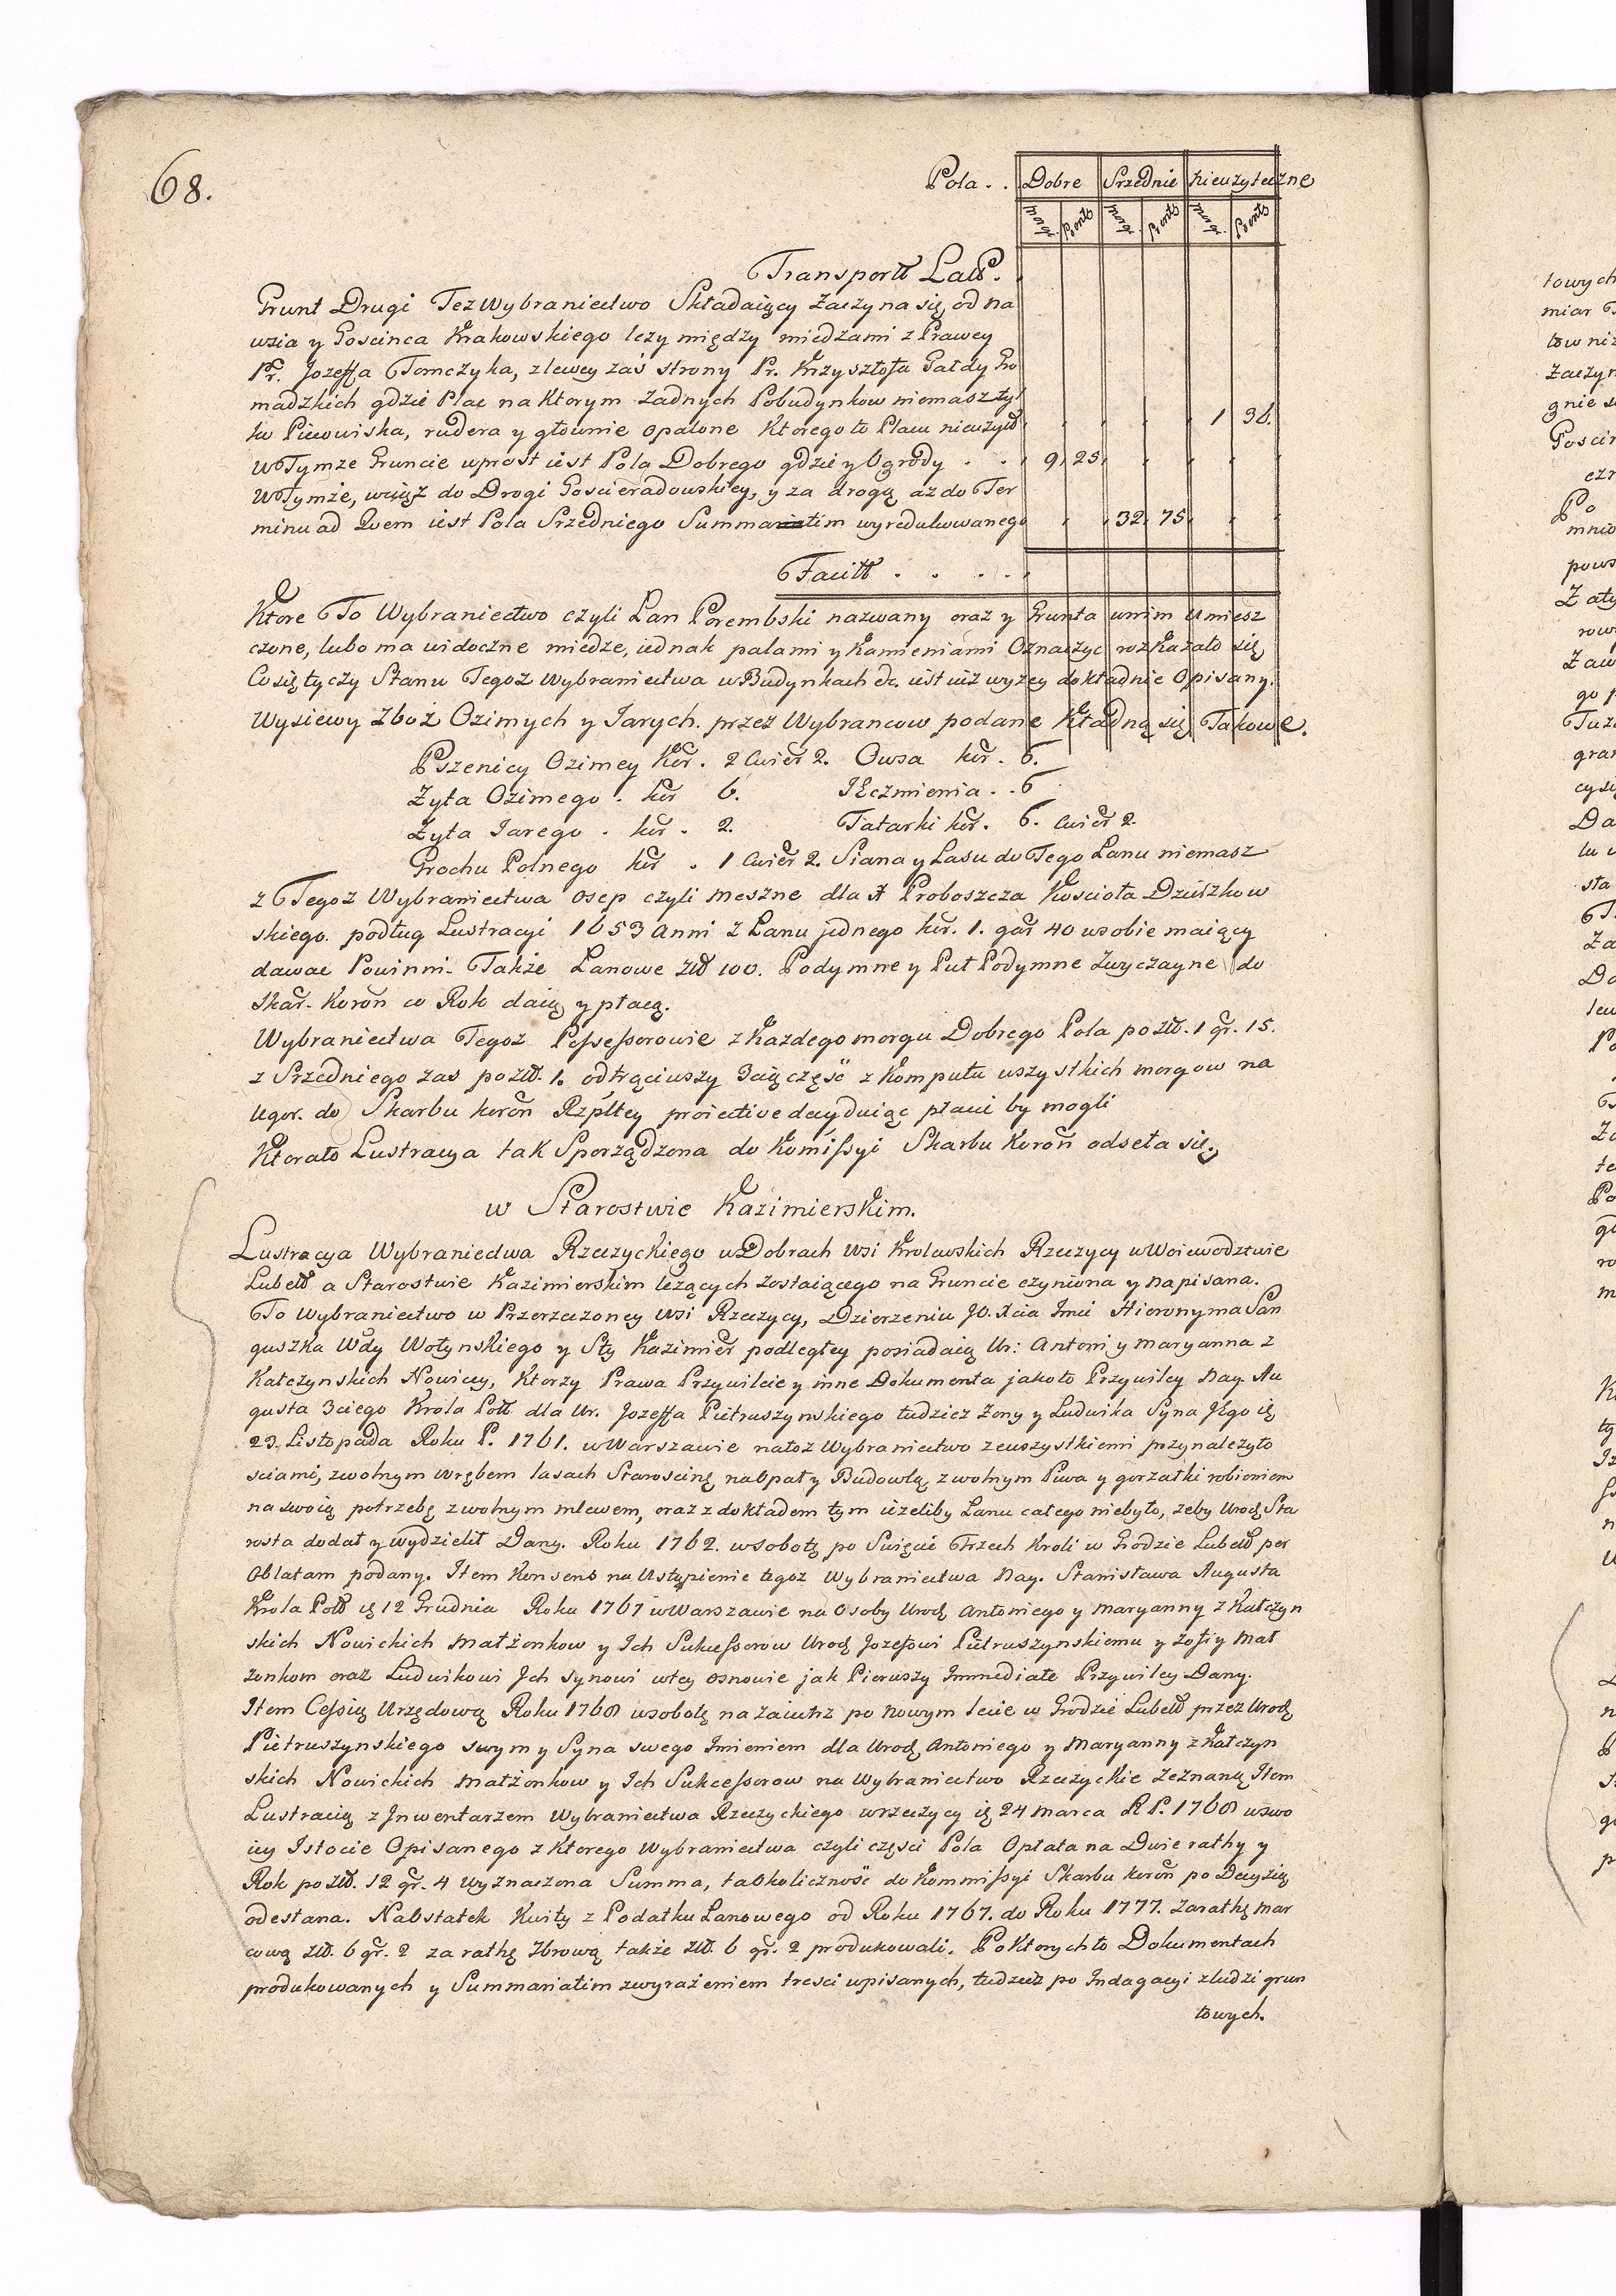 68.
Pola . . Dobre Srzednie Nieuzyteczne
morg. Prento morg. Prento morg. Prento
Transportt Latt.
Grunt Drugi Tez Wybraniectwo Składaiący Zaczyna się od na
wsia y Goscinca Krakowskiego lezy między miedzami z Prawey
Pr. Jozeffa Tomczyka, z lewey zaś strony Pr. Krzysztofa Gałdy Gro
madzkich gdzie Plac na Ktorym Zadnych Pobudynkow niemasz tyl
ko Piecowiska, rudera y głownie opalone Ktorego to Placu nieuzytt . . . . 1 38.
W Tymze Gruncie wprost iest Pola Dobrego gdzie y Ogrody . . 9 25 . . . .
W Tymże, wciąż do Drogi Goscieradowskiey, y za drogą aż do Ter
minu ad Quem iest Pola Srzedniego Summatim wyredukowanego . . 32. 75. . .
Facitt . . . . .
Ktore To Wybraniectwo czyli Łan Porembski nazwany oraz y Grunta w nim Umiesz
czone, lubo ma widoczne miedze, iednak palami y Kamieniami Oznaczyc rozKazało się
Co się tyczy Stanu Tegoz Wybraniectwa w Budynkach &c. iest iuż wyzey dokładnie Opisany.
Wysiewy Zboż Ozimych y Jarych. przez Wybrancow podane Kładną się Takowe.
Pszenicy Ozimey Kor. 2 Cwier 2. Owsa kor. 6.
Zyta Ozimego . kor 6. JEczmienia . . 6
Zyta Jarego . kor . 2. Tatarki kor. 6. Cwier 2.
Grochu Polnego kor . 1 Cwier 2. Siana y Lasu do Tego Łanu niemasz
z Tegoz Wybraniectwa osep czyli meszne dla X Proboszcza Kościoła Dziiszkow
skiego. podług Lustracyi 1653 Anni z Łanu jednego kor. 1. gar 40 w sobie maiący
dawac Powinni. Także Łanowe złł 100. Podymne y Puł Podymne Zwyczayne do
Skar. Koron co Rok daią y płacą.
Wybraniectwa Tegoz Possessorowie z Kazdego morgu Dobrego Pola po złł. 1 gr. 15.
z Srzedniego zas po złł. 1. odtrąciwszy 3cią część z Komputu wszystkich morgow na
Ugor. do Skarbu koron Rzpltey proiective decyduiąc płacic by mogli
Ktorato Lustracya tak Sporządzona do Komissyi Skarbu Koron odseła się.
w Starostwie Kazimierskim.
Lustracya Wybraniectwa Rzeczyckiego w Dobrach Wsi Krolewskich Rzeczycy w Woiewodztwie
Lubell a Starostwie Kazimierskim leżących zostaiącego na Gruncie czyniona y napisana.
To Wybraniectwo w Przerzeczoney Wsi Rzeczycy, Dzierzeniu JO. Xcia Jmci Hieronyma San
guszka Wdy Wołynskiego y Sty Kazimier podległey posiadaią Ur: Antoni y Maryanna z
Kałczynskich Nowiccy, Ktorzy Prawa Przywileie y inne Dokumenta jakoto Przywiley Nay. Au
gusta 3ciego Krola Poll dla Ur. Jozeffa Pietruszynskiego tudziez Zony y Ludwika Syna Jego ię
23. Listopada Roku P. 1761. w Warszawie na toż Wybraniectwo ze wszystkiemi przynależyto
sciami, z wolnym wrębem lasach Starościnę na Opał y Budowlę z wolnym Piwa y gorzałki robieniem
na swoią potrzebę z wolnym mlewem, oraz z dokładem tym iżeliby Łanu całego niebyło, żeby Urod. Sta
rosta dodał y wydzielił Dany. Roku 1762. w sobotę po Święcie Trzech Kroli w Grodzie Lubell per
Oblatam podany. Item Konsens na Ustąpienie tegoz Wybraniectwa Nay. Stanisława Augusta
Krola Poll ię 12 Grudnia Roku 1767 w Warszawie na Osoby Urod. Antoniego y Maryanny z Kałczyn
skich Nowickich Małżonkow y Ich Sukcessorow Urod. Jozeffowi Pietruszynskiemu y Zofiy Mał
żonkom oraz Ludwikowi Jch synowi w tey osnowie jak Pierwszy Immediate Przywiley Dany.
Item Cessią Urzędową Roku 1768 w sobotę nazaiutrz po nowym lecie w Grodzie Lubell przez Urod.
Pietruszynskiego swym y Syna swego Jmieniem dla Urod. Antoniego y Maryanny z Kałczyn
skich Nowickich Małżonkow y Ich Sukcessorow na Wybraniectwo Rzeczyckie zeznaną Item
Lustracią z Jnwentarzem Wybraniectwa Rzeczyckiego w Rzeczycy ię 24 Marca R P. 1768 w swo
iey Istocie Opisanego z Ktorego Wybraniectwa czyli częsci Pola Opłata na Dwie rathy y
Rok po złł. 12 gr. 4 wyznaczona Summa, ta Okoliczność do Kommissyi Skarbu koron po Decyzią
odesłana. Naostatek Kwity z Podatku Łanowego od Roku 1767. do Roku 1777. za rathę Mar
cową złł. 6 gr. 2 za rathę 7brową także złł. 6 gr. 2 produkowali. Po Ktorych to Dokumentach
produkowanych y Summariatim z wyrażeniem tresci wpisanych, tudzież po Indagacyi z ludzi grun
towych.